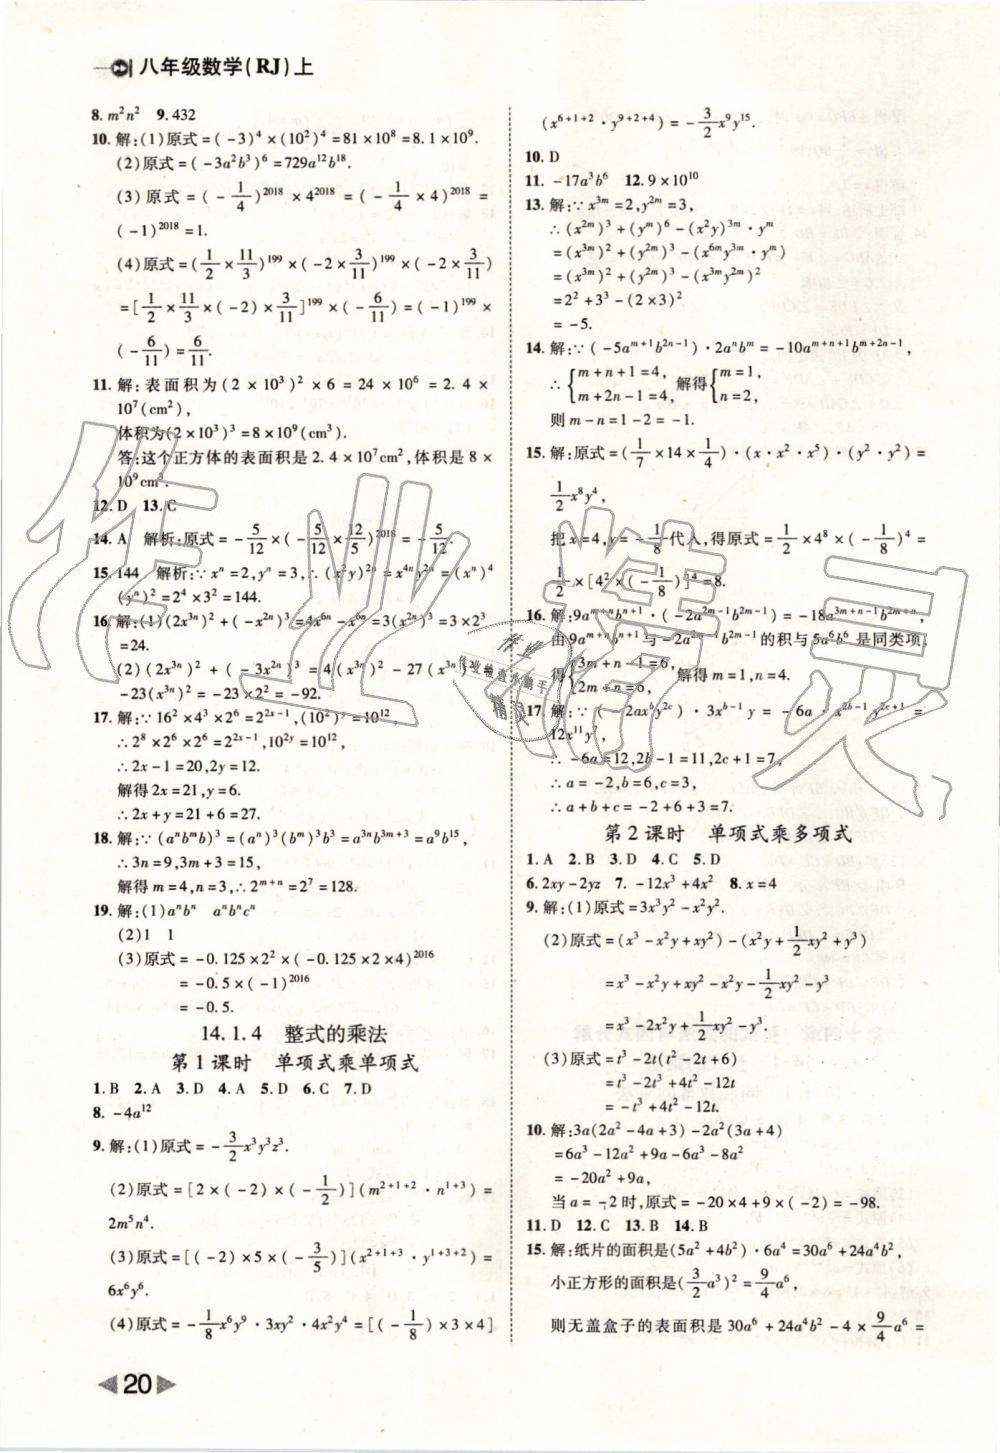 八年级数学(RJ)上
8. m²n²　9. 432
10. 解:(1)原式=(-3)⁴×(10²)⁴=81×10⁸=8.1×10⁹.
(2)原式=(-3a²b³)⁶=729a¹²b¹⁸.
(3)原式=(-1/4)²⁰¹⁸×4²⁰¹⁸=(-1/4×4)²⁰¹⁸=
(-1)²⁰¹⁸=1.
(4)原式=(1/2×11/3)¹⁹⁹×(-2×3/11)¹⁹⁹×(-2×3/11)
=[1/2×11/3×(-2)×3/11]¹⁹⁹×(-6/11)=(-1)¹⁹⁹×
(-6/11)=6/11.
11. 解:表面积为(2×10³)²×6=24×10⁶=2.4×
10⁷(cm²),
体积为(2×10³)³=8×10⁹(cm³).
答:这个正方体的表面积是2.4×10⁷cm²,体积是8×
10⁹cm³.
12. D　13. C
14. A　解析:原式=-5/12×(-5/12×12/5)²⁰¹⁸=-5/12.
15. 144　解析:∵xⁿ=2,yⁿ=3,∴(x²y)²ⁿ=x⁴ⁿy²ⁿ=(xⁿ)⁴
(yⁿ)²=2⁴×3²=144.
16. 解:(1)(2x³ⁿ)²+(-x²ⁿ)³=4x⁶ⁿ-x⁶ⁿ=3(x²ⁿ)³=3×2³
=24.
(2)(2x³ⁿ)²+(-3x²ⁿ)³=4(x³ⁿ)²-27(x³ⁿ)²=
-23(x³ⁿ)²=-23×2²=-92.
17. 解:∵16²×4³×2⁶=2²ˣ⁻¹,(10²)ʸ=10¹²,
∴2⁸×2⁶×2⁶=2²ˣ⁻¹,10²ʸ=10¹²,
∴2x-1=20,2y=12.
解得2x=21,y=6.
∴2x+y=21+6=27.
18. 解:∵(aⁿbᵐb)³=(aⁿ)³(bᵐ)³b³=a³ⁿb³ᵐ⁺³=a⁹b¹⁵,
∴3n=9,3m+3=15,
解得m=4,n=3,∴2ᵐ⁺ⁿ=2⁷=128.
19. 解:(1)aⁿbⁿ　aⁿbⁿcⁿ
(2)1　1
(3)原式=-0.125×2²×(-0.125×2×4)²⁰¹⁶
=-0.5×(-1)²⁰¹⁶
=-0.5.
14.1.4　整式的乘法
第1课时　单项式乘单项式
1. B　2. A　3. D　4. A　5. D　6. C　7. D
8. -4a¹²
9. 解:(1)原式=-3/2x³y³z³.
(2)原式=[2×(-2)×(-1/2)](m²⁺¹⁺²·n¹⁺³)=
2m⁵n⁴.
(3)原式=[(-2)×5×(-3/5)](x²⁺¹⁺³·y¹⁺³⁺²)=
6x⁶y⁶.
(4)原式=-1/8x⁶y⁹·3xy²·4x²y⁴=[(-1/8)×3×4]
(x⁶⁺¹⁺²·y⁹⁺²⁺⁴)=-3/2x⁹y¹⁵.
10. D
11. -17a³b⁶　12. 9×10¹⁰
13. 解:∵x³ᵐ=2,y²ᵐ=3,
∴(x²ᵐ)³+(yᵐ)⁶-(x²y)³ᵐ·yᵐ
=(x³ᵐ)²+(y²ᵐ)³-(x⁶ᵐy³ᵐ·yᵐ)
=(x³ᵐ)²+(y²ᵐ)³-(x³ᵐy²ᵐ)²
=2²+3³-(2×3)²
=-5.
14. 解:∵(-5aᵐ⁺¹b²ⁿ⁻¹)·2aⁿbᵐ=-10aᵐ⁺ⁿ⁺¹bᵐ⁺²ⁿ⁻¹,
∴{m+n+1=4, m+2n-1=4, 解得{m=1, n=2,
则m-n=1-2=-1.
15. 解:原式=(1/7×14×1/4)·(x·x²·x⁵)·(y²·y²)=
1/2x⁸y⁴,
把x=4,y=-1/8代入,得原式=1/2×4⁸×(-1/8)⁴=
1/2×[4²×(-1/8)]⁴=8.
16. 解:9aᵐ⁺ⁿbⁿ⁺¹·(-2a²ᵐ⁻¹b²ᵐ⁻¹)=-18a³ᵐ⁺ⁿ⁻¹b²ᵐ⁺ⁿ,
由9aᵐ⁺ⁿbⁿ⁺¹与-2a²ᵐ⁻¹b²ᵐ⁻¹的积与5a⁶b⁶是同类项,
得{3m+n-1=6, 2m+n=6, 解得m=1,n=4.
17. 解:∵(-2axᵇy²ᶜ)·3xᵇ⁻¹y=-6a·x²ᵇ⁻¹y²ᶜ⁺¹=
12x¹¹y⁷,
∴-6a=12,2b-1=11,2c+1=7,
∴a=-2,b=6,c=3,
∴a+b+c=-2+6+3=7.
第2课时　单项式乘多项式
1. A　2. B　3. D　4. C　5. D
6. 2xy-2yz　7. -12x³+4x²　8. x=4
9. 解:(1)原式=3x³y²-x²y².
(2)原式=(x³-x²y+xy²)-(x²y+1/2xy²+y³)
=x³-x²y+xy²-x²y-1/2xy²-y³
=x³-2x²y+1/2xy²-y³.
(3)原式=t³-2t(t²-2t+6)
=t³-2t³+4t²-12t
=-t³+4t²-12t.
10. 解:3a(2a²-4a+3)-2a²(3a+4)
=6a³-12a²+9a-6a³-8a²
=-20a²+9a,
当a=-2时,原式=-20×4+9×(-2)=-98.
11. D　12. C　13. B　14. B
15. 解:纸片的面积是(5a²+4b²)·6a⁴=30a⁶+24a⁴b²,
小正方形的面积是(3/2a³)²=9/4a⁶,
则无盖盒子的表面积是30a⁶+24a⁴b²-4×9/4a⁶=
20
作业精灵
作业
作业检查小助手
精灵